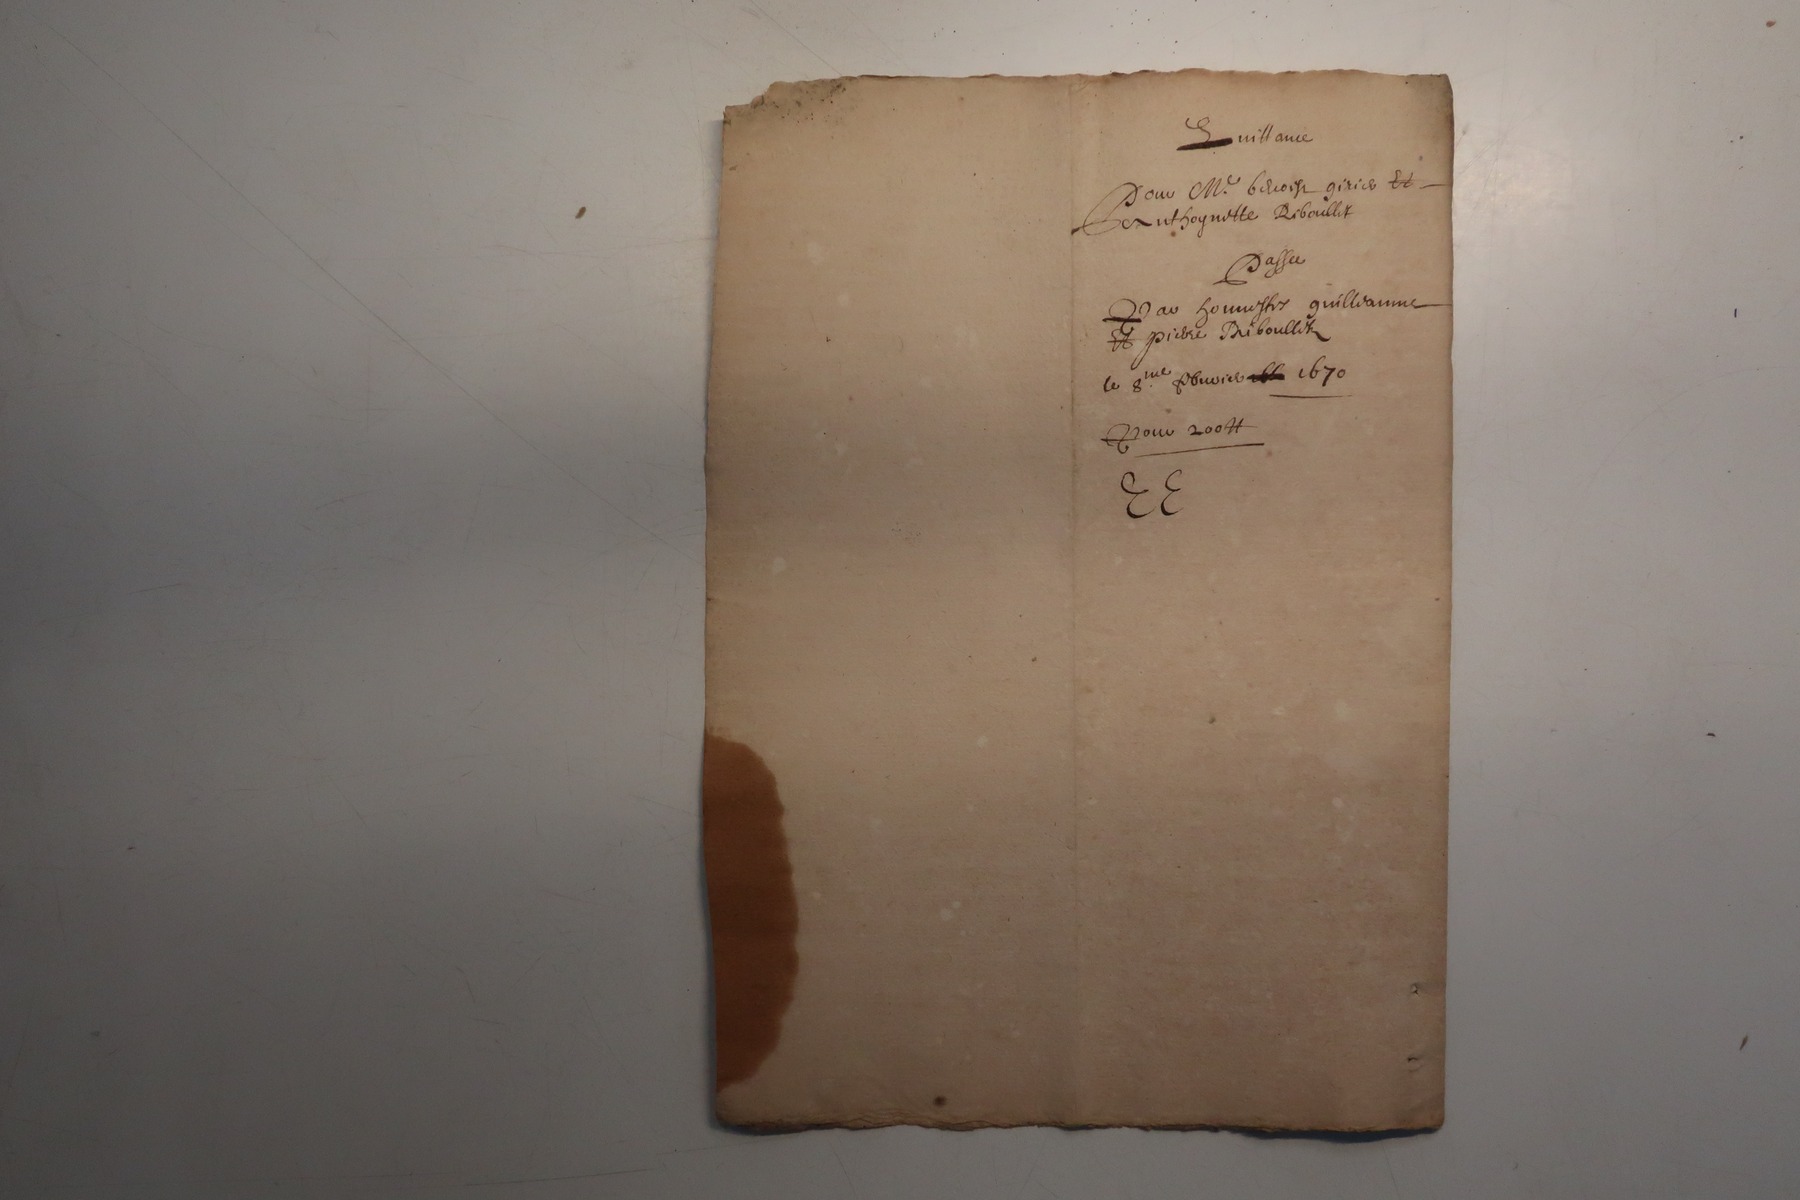 Quittance
Pour Mr. benoist girier Et
Anthoynette Riboullet
Passee
Par honnestes guilleaume
Et pierre Riboullet
le 8.me febvrier 1670
Pour 200 tt
EE